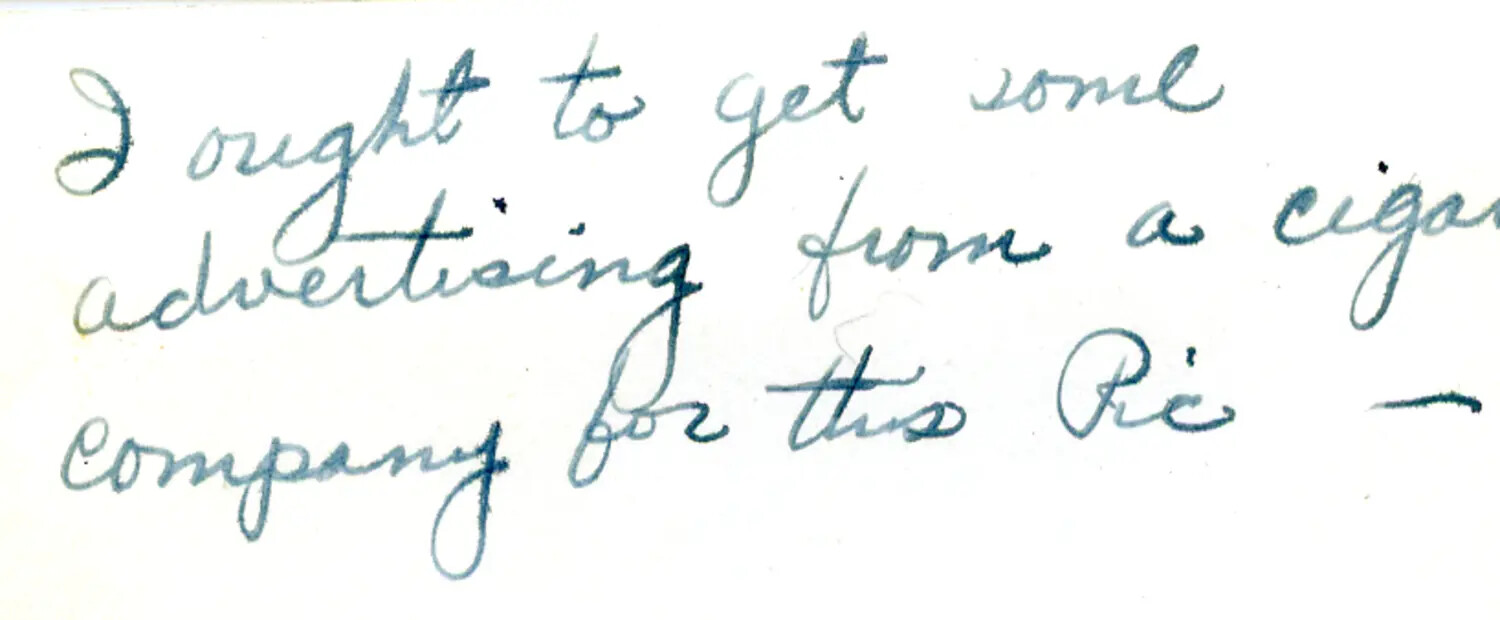 I ought to get some
advertising from a cigar
company for this Pic —